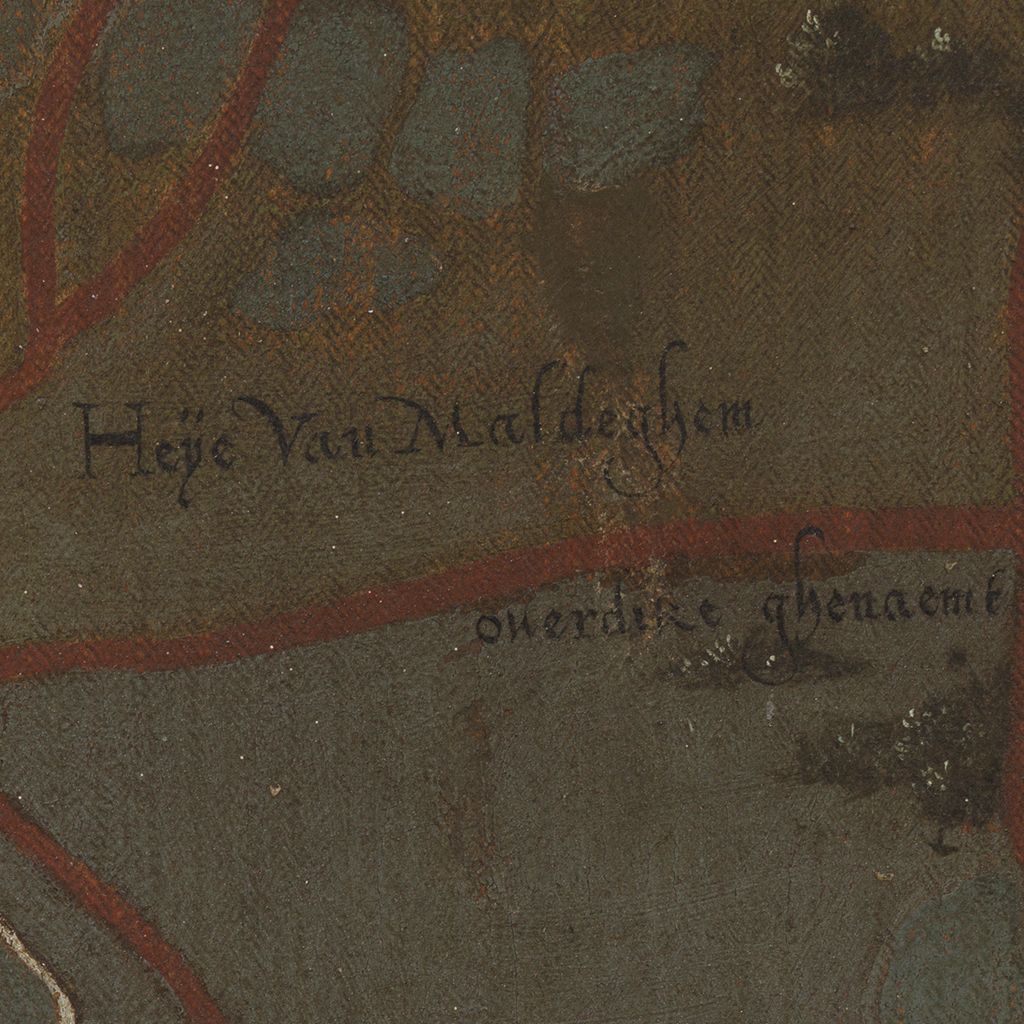 Heÿe Van Maldeghem
ouerdike ghenaemt